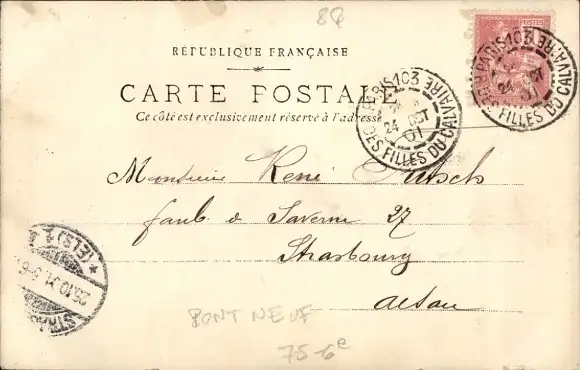 8Q
POSTES
RÉPUBLIQUE FRANÇAISE
CARTE POSTALE
Ce côté est exclusivement réservé à l'adresse
PARIS 103
24 OCT 01
DES FILLES DU CALVAIRE
PARIS 103
24
DES FILLES DU CALVAIRE
Monsieur René
faub de Saverne 27
Strasbourg
Alsace
STRAS
25.10.01. 5-6
(ELS) 1
PONT NEUF
75-6e